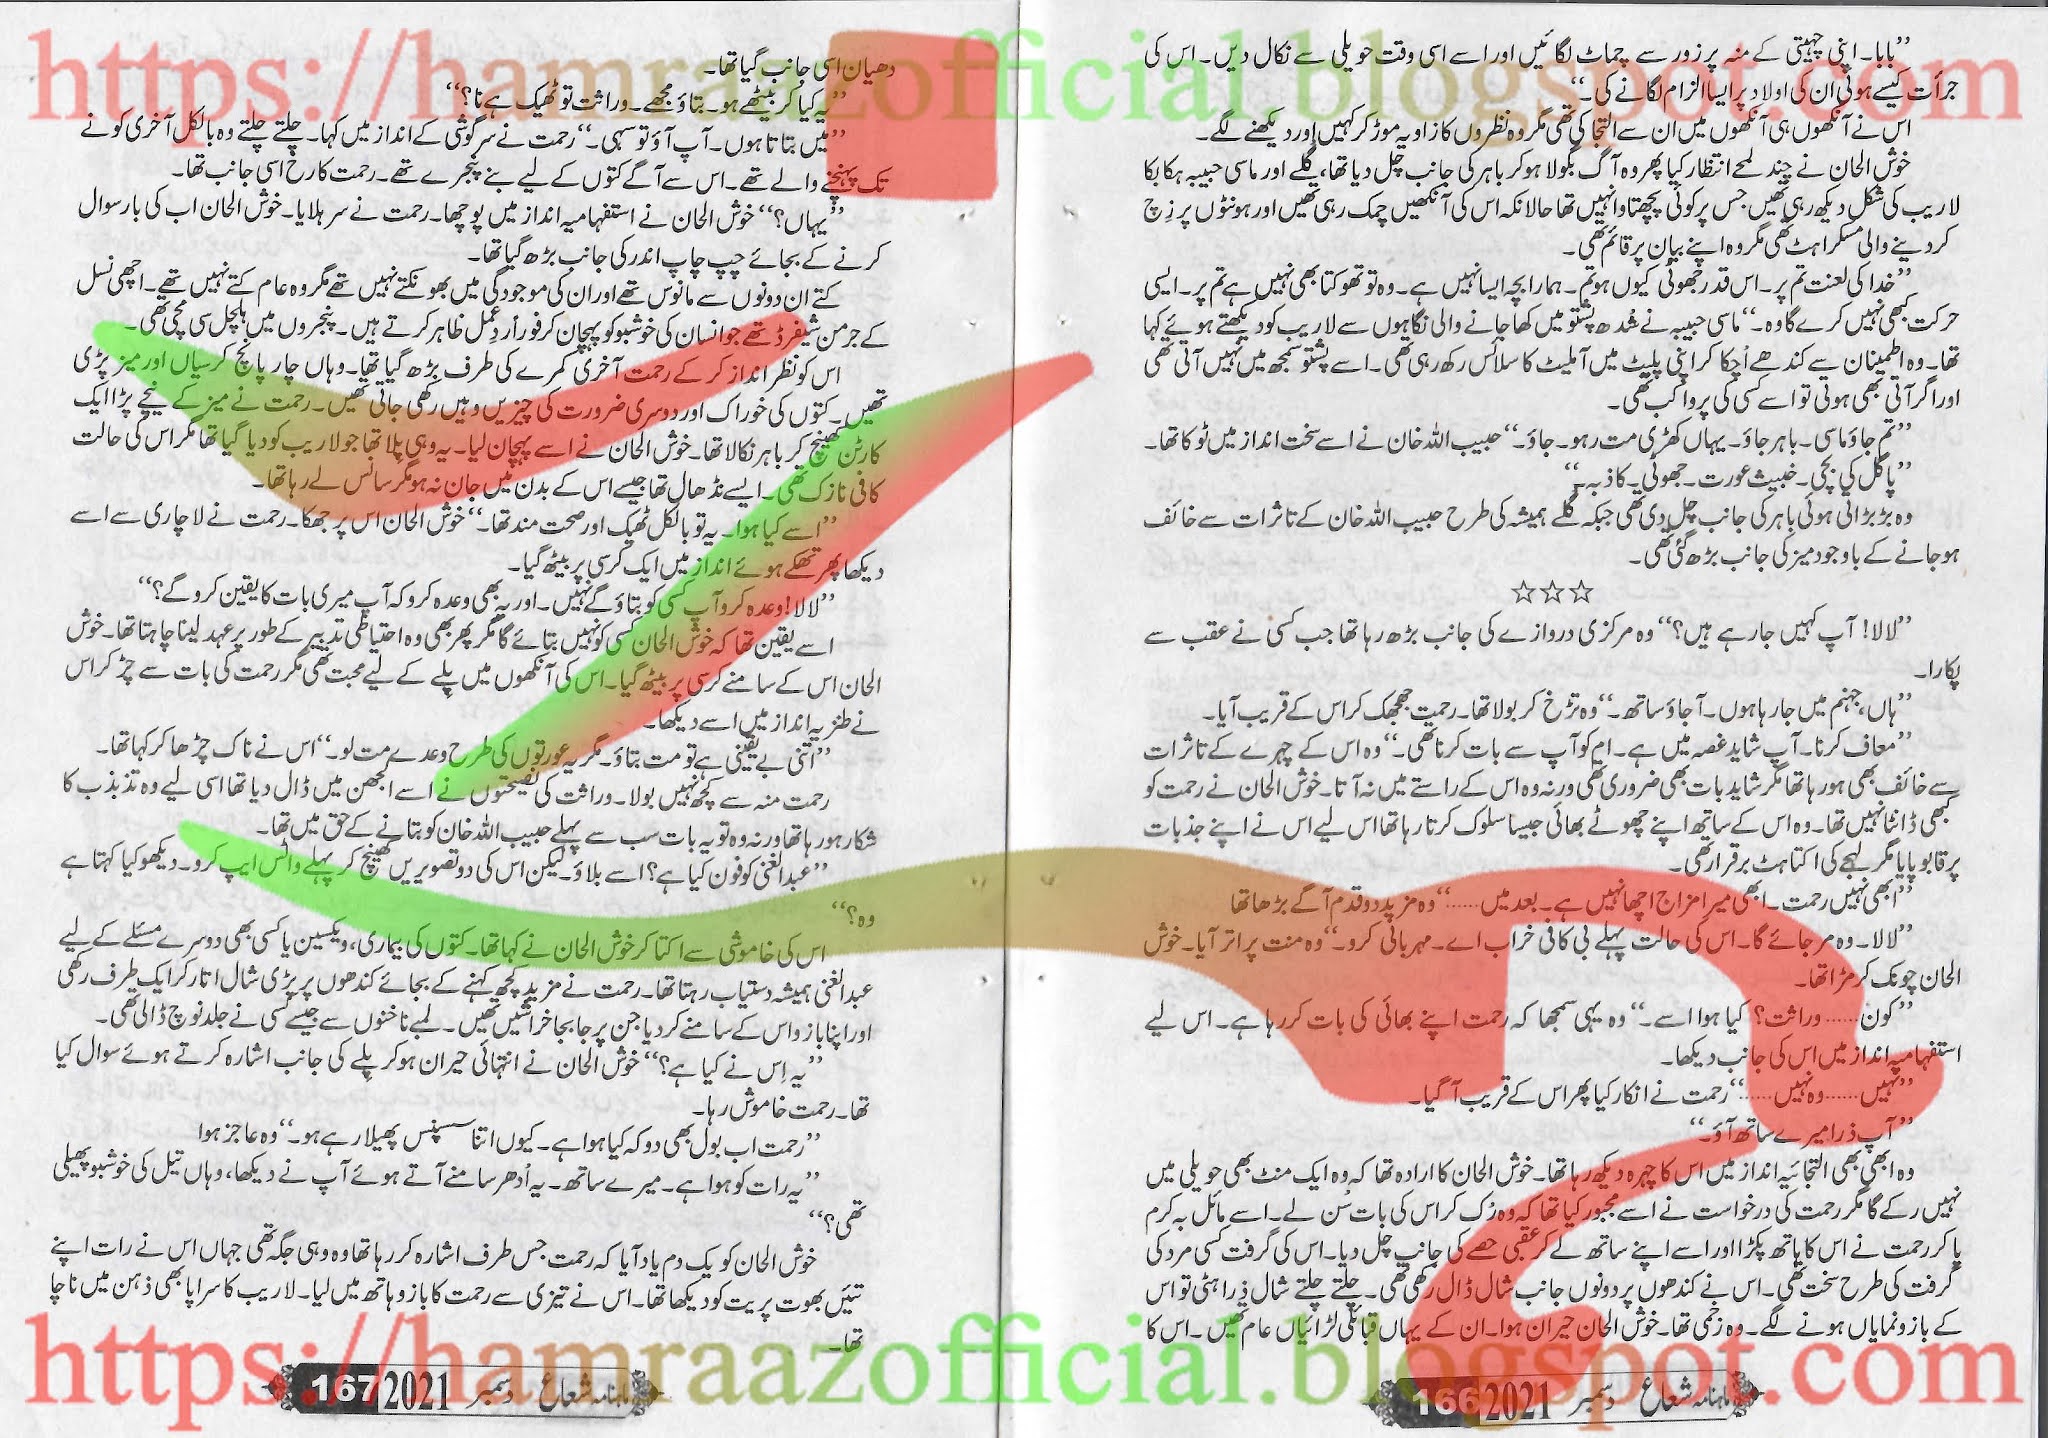 https://hamraazofficial.blogspot.com
”بابا۔ اپنی چہیتی کے منہ پر زور سے چماٹ لگائیں اور اسے اسی وقت حویلی سے نکال دیں۔ اس کی
جرأت کیسے ہوئی ان کی اولاد پر ایسا الزام لگانے کی۔“
اس نے آنکھوں ہی آنکھوں میں ان سے التجا کی تھی مگر وہ نظروں کا زاویہ موڑ کر کہیں اور دیکھنے لگے۔
خوش الحان نے چند لمحے انتظار کیا پھر وہ آگ بگولا ہو کر باہر کی جانب چل دیا تھا، گلے اور ماسی حبیبہ ہکا بکا
لاریب کی شکل دیکھ رہی تھیں جس پر کوئی پچھتاوا نہیں تھا حالانکہ اس کی آنکھیں چمک رہی تھیں اور ہونٹوں پر زچ
کر دینے والی مسکراہٹ تھی مگر وہ اپنے بیان پر قائم تھی۔
”خدا کی لعنت تم پر۔ اس قدر جھوٹی کیوں ہو تم۔ ہمارا بچہ ایسا نہیں ہے۔ وہ تو تھوکتا بھی نہیں ہے تم پر۔ ایسی
حرکت کبھی نہیں کرے گا وہ۔“ ماسی حبیبہ نے شدھ پشتو میں کھا جانے والی نگاہوں سے لاریب کو دیکھتے ہوئے کہا
تھا۔ وہ اطمینان سے کندھے اُچکا کر اپنی پلیٹ میں آملیٹ کا سلائس رکھ رہی تھی۔ اسے پشتو سمجھ میں نہیں آتی تھی
اور اگر آتی بھی ہوتی تو اسے کسی کی پروا کب تھی۔
”تم جاؤ ماسی۔ باہر جاؤ۔ یہاں کھڑی مت رہو۔ جاؤ۔“ حبیب اللہ خان نے اسے سخت انداز میں ٹوکا تھا۔
”پاگل کی بچی۔ خبیث عورت۔ جھوٹی۔ کاذبہ۔“
وہ بڑبڑاتی ہوئی باہر کی جانب چل دی تھی جبکہ گلے ہمیشہ کی طرح حبیب اللہ خان کے تاثرات سے خائف
ہو جانے کے باوجود میز کی جانب بڑھ گئی تھی۔
☆☆☆
”لالا! آپ کہیں جا رہے ہیں؟“ وہ مرکزی دروازے کی جانب بڑھ رہا تھا جب کسی نے عقب سے
پکارا۔
”ہاں، جہنم میں جا رہا ہوں۔ آ جاؤ ساتھ۔“ وہ تڑخ کر بولا تھا۔ رحمت جھجھک کر اس کے قریب آیا۔
”معاف کرنا۔ آپ شاید غصہ میں ہے۔ ام کو آپ سے بات کرنا تھی۔“ وہ اس کے چہرے کے تاثرات
سے خائف بھی ہو رہا تھا مگر شاید بات بھی ضروری تھی ورنہ وہ اس کے راستے میں نہ آتا۔ خوش الحان نے رحمت کو
کبھی ڈانٹا نہیں تھا۔ وہ اس کے ساتھ اپنے چھوٹے بھائی جیسا سلوک کرتا رہا تھا اس لیے اس نے اپنے جذبات
پر قابو پایا مگر لہجے کی اکتاہٹ برقرار تھی۔
”ابھی نہیں رحمت۔ ابھی میرا مزاج اچھا نہیں ہے۔ بعد میں......“ وہ مزید دو قدم آگے بڑھا تھا
”لالا۔ وہ مر جائے گا۔ اس کی حالت پہلے ہی کافی خراب اے۔ مہربانی کرو۔“ وہ منت پر اتر آیا۔ خوش
الحان چونک کر مڑا تھا۔
”کون...... وراثت؟ کیا ہوا اسے۔“ وہ یہی سمجھا کہ رحمت اپنے بھائی کی بات کر رہا ہے۔ اس لیے
استفہامیہ انداز میں اس کی جانب دیکھا۔
”نہیں...... وہ نہیں......“ رحمت نے انکار کیا پھر اس کے قریب آ گیا۔
”آپ ذرا میرے ساتھ آؤ۔“
وہ ابھی بھی التجائیہ انداز میں اس کا چہرہ دیکھ رہا تھا۔ خوش الحان کا ارادہ تھا کہ وہ ایک منٹ بھی حویلی میں
نہیں رکے گا مگر رحمت کی درخواست نے اسے مجبور کیا تھا کہ وہ رُک کر اس کی بات سُن لے۔ اسے مائل بہ کرم
پا کر رحمت نے اس کا ہاتھ پکڑا اور اسے اپنے ساتھ لے کر عقبی حصے کی جانب چل دیا۔ اس کی گرفت کسی مرد کی
گرفت کی طرح سخت تھی۔ اس نے کندھوں پر دونوں جانب شال ڈال رکھی تھی۔ چلتے چلتے شال ذرا ہٹی تو اس
کے بازو نمایاں ہونے لگے۔ وہ زخمی تھا۔ خوش الحان حیران ہوا۔ ان کے یہاں قبائلی لڑائیاں عام تھیں۔ اس کا
ماہنامہ شعاع دسمبر 2021 166
دھیان اسی جانب گیا تھا۔
”یہ کیا کر بیٹھے ہو۔ بتاؤ مجھے۔ وراثت تو ٹھیک ہے نا؟“
”میں بتاتا ہوں۔ آپ آؤ تو سہی۔“ رحمت نے سرگوشی کے انداز میں کہا۔ چلتے چلتے وہ بالکل آخری کونے
تک پہنچنے والے تھے۔ اس سے آگے کتوں کے لیے بنے پنجرے تھے۔ رحمت کا رخ اسی جانب تھا۔
”یہاں؟“ خوش الحان نے استفہامیہ انداز میں پوچھا۔ رحمت نے سر ہلایا۔ خوش الحان اب کی بار سوال
کرنے کے بجائے چپ چاپ اندر کی جانب بڑھ گیا تھا۔
کتے ان دونوں سے مانوس تھے اور ان کی موجودگی میں بھونکتے نہیں تھے مگر وہ عام کتے نہیں تھے۔ اچھی نسل
کے جرمن شیفرڈ تھے جو انسان کی خوشبو کو پہچان کر فوراً ردِعمل ظاہر کرتے ہیں۔ پنجروں میں ہلچل سی مچی تھی۔
اس کو نظر انداز کر کے رحمت آخری کمرے کی طرف بڑھ گیا تھا۔ وہاں چار پانچ کرسیاں اور میز پڑی
تھیں۔ کتوں کی خوراک اور دوسری ضرورت کی چیزیں وہیں رکھی جاتی تھیں۔ رحمت نے میز کے نیچے پڑا ایک
کارٹن کھینچ کر باہر نکالا تھا۔ خوش الحان نے اسے پہچان لیا۔ یہ وہی پلا تھا جو لاریب کو دیا گیا تھا مگر اس کی حالت
کافی نازک تھی۔ ایسے نڈھال تھا جیسے اس کے بدن میں جان نہ ہو مگر سانس لے رہا تھا۔
”اسے کیا ہوا۔ یہ تو بالکل ٹھیک اور صحت مند تھا۔“ خوش الحان اس پر جھکا۔ رحمت نے لاچاری سے اسے
دیکھا پھر تھکے ہوئے انداز میں ایک کرسی پر بیٹھ گیا۔
”لالا! وعدہ کرو آپ کسی کو بتاؤ گے نہیں۔ اور یہ بھی وعدہ کرو کہ آپ میری بات کا یقین کرو گے؟“
اسے یقین تھا کہ خوش الحان کسی کو نہیں بتائے گا مگر پھر بھی وہ احتیاطی تدبیر کے طور پر عہد لینا چاہتا تھا۔ خوش
الحان اس کے سامنے کرسی پر بیٹھ گیا۔ اس کی آنکھوں میں پلے کے لیے محبت تھی مگر رحمت کی بات سے چڑ کر اس
نے طنزیہ انداز میں اسے دیکھا۔
”اتنی بے یقینی ہے تو مت بتاؤ۔ مگر یہ عورتوں کی طرح وعدے مت لو۔“ اس نے ناک چڑھا کر کہا تھا۔
رحمت منہ سے کچھ نہیں بولا۔ وراثت کی نصیحتوں نے اسے الجھن میں ڈال دیا تھا اسی لیے وہ تذبذب کا
شکار ہو رہا تھا ورنہ وہ تو یہ بات سب سے پہلے حبیب اللہ خان کو بتانے کے حق میں تھا۔
”عبدالغنی کو فون کیا ہے؟ اسے بلاؤ۔ لیکن اس کی دو تصویریں کھینچ کر پہلے واٹس ایپ کرو۔ دیکھو کیا کہتا ہے
وہ؟“
اس کی خاموشی سے اکتا کر خوش الحان نے کہا تھا۔ کتوں کی بیماری، ویکسین یا کسی بھی دوسرے مسئلے کے لیے
عبدالغنی ہمیشہ دستیاب رہتا تھا۔ رحمت نے مزید کچھ کہنے کے بجائے کندھوں پر پڑی شال اتار کر ایک طرف رکھی
اور اپنا بازو اس کے سامنے کر دیا جن پر جا بجا خراشیں تھیں۔ لمبے ناخنوں سے جیسے کسی نے جلد نوچ ڈالی تھی۔
”یہ اِس نے کیا ہے؟“ خوش الحان نے انتہائی حیران ہو کر پلے کی جانب اشارہ کرتے ہوئے سوال کیا
تھا۔ رحمت خاموش رہا۔
”رحمت اب بول بھی دو کہ کیا ہوا ہے۔ کیوں اتنا سسپنس پھیلا رہے ہو۔“ وہ عاجز ہوا
”یہ رات کو ہوا ہے۔ میرے ساتھ۔ یہ اُدھر سامنے آتے ہوئے آپ نے دیکھا، وہاں تیل کی خوشبو پھیلی
تھی؟“
خوش الحان کو یک دم یاد آیا کہ رحمت جس طرف اشارہ کر رہا تھا وہ وہی جگہ تھی جہاں اس نے رات اپنے
تئیں بھوت پریت کو دیکھا تھا۔ اس نے تیزی سے رحمت کا بازو ہاتھ میں لیا۔ لاریب کا سراپا بھی ذہن میں ناچا
تھا۔
ماہنامہ شعاع دسمبر 2021 167
https://hamraazofficial.blogspot.com